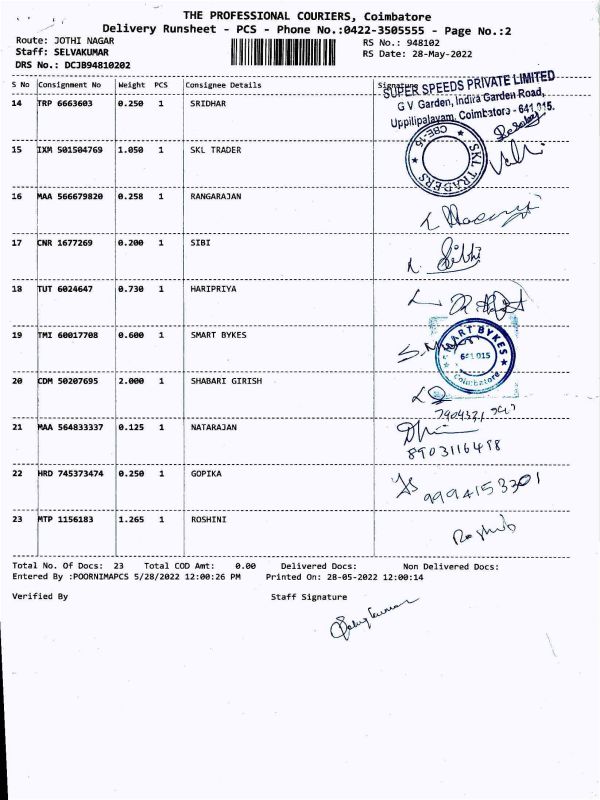 THE PROFESSIONAL COURIERS, Coimbatore
Delivery Runsheet - PCS - Phone No.:0422-3505555 - Page No.:2
Route: JOTHI NAGAR
RS No.: 948102
Staff: SELVAKUMAR
RS Date: 28-May-2022
DRS No.: DCJB94810202
S No Consignment No Weight PCS Consignee Details Signature
SUPER SPEEDS PRIVATE LIMITED
G V Garden, Indira Garden Road,
Uppilipalayam, Coimbatore - 641 015.
14 TRP 6663603 0.250 1 SRIDHAR
15 IXM 501504769 1.050 1 SKL TRADER
SKL TRADERS CBE-15
16 MAA 566679820 0.258 1 RANGARAJAN
17 CNR 1677269 0.200 1 SIBI
18 TUT 6024647 0.730 1 HARIPRIYA
19 TMI 60017708 0.600 1 SMART BYKES
SMART BYKES
641 015
Coimbatore
20 CDM 50207695 2.000 1 SHABARI GIRISH
21 MAA 564833337 0.125 1 NATARAJAN
8903116498
22 HRD 745373474 0.250 1 GOPIKA
9994153301
23 MTP 1156183 1.265 1 ROSHINI
Total No. Of Docs: 23 Total COD Amt: 0.00 Delivered Docs: Non Delivered Docs:
Entered By :POORNIMAPCS 5/28/2022 12:00:26 PM Printed On: 28-05-2022 12:00:14
Verified By Staff Signature